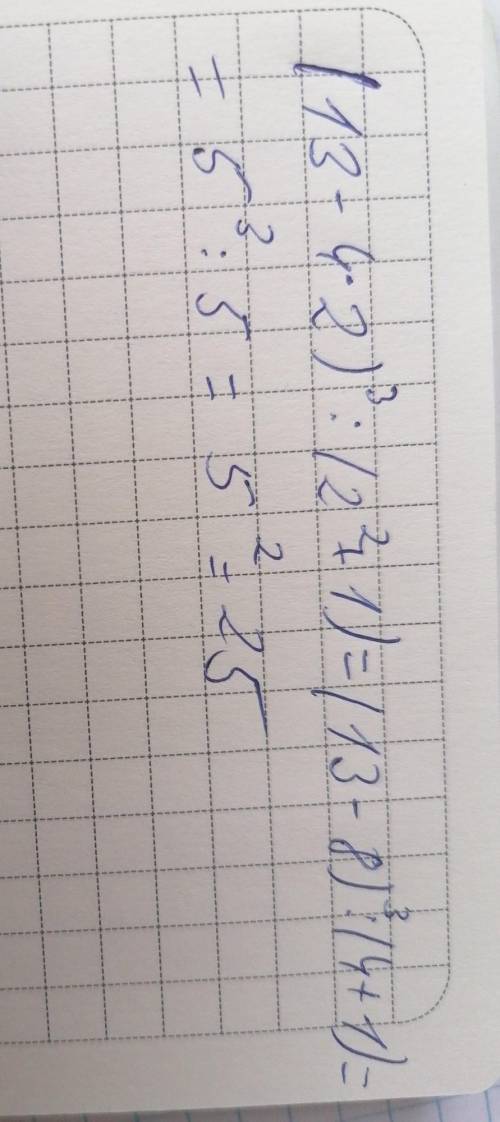 (13-4·2)³:(2²+1)=(13-8)³:(4+1)=
=5³:5=5²=25